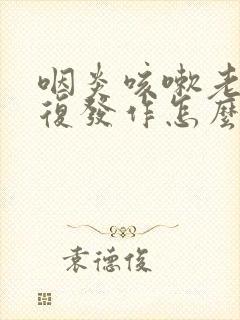 咽炎咳嗽老
復發作怎麼
袁德俊